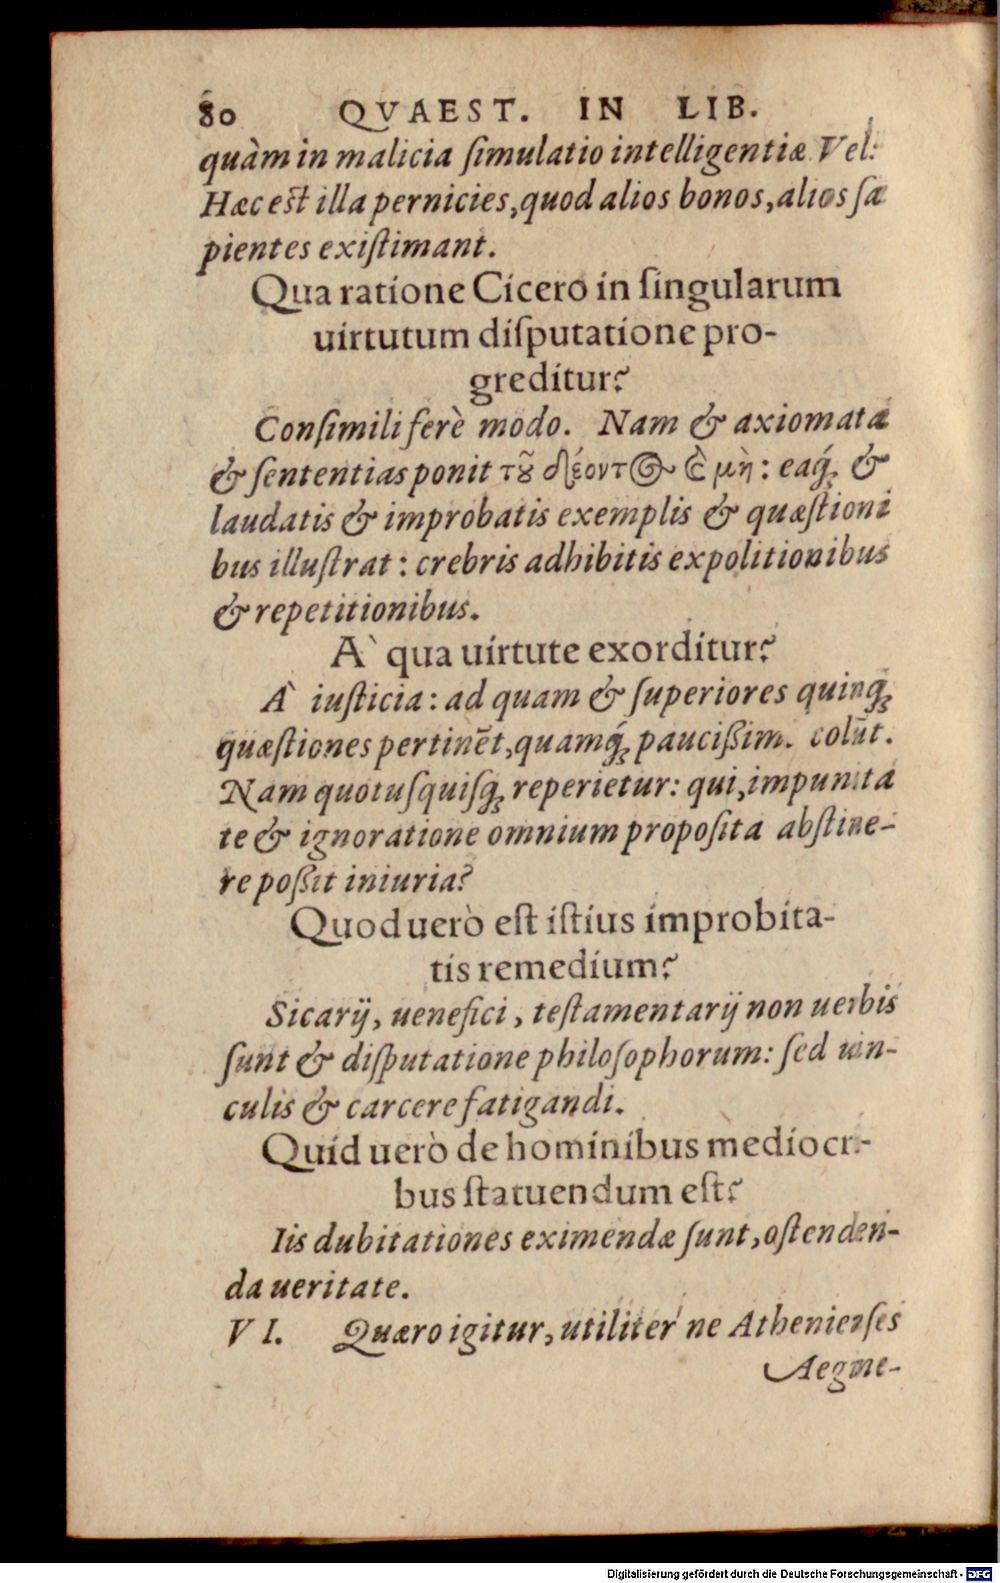 80 QVAEST. IN LIB.
quàm in malicia ſimulatio intelligentiæ Vel:
Hæc eſt illa pernicies, quod alios bonos, alios ſa
pientes exiſtimant.
Qua ratione Cicero in ſingularum
uirtutum diſputatione pro-
greditur?
Conſimili ferè modo. Nam & axiomata
& ſententias ponit τȣ͂ δέοντος ϗ̀ μὴ: eaq́ꝫ &
laudatis & improbatis exemplis & quæſtioni
bus illuſtrat: crebris adhibitis expolitionibus
& repetitionibus.
A` qua uirtute exorditur?
A` iuſticia: ad quam & ſuperiores quinqꝫ
quæſtiones pertinēt, quamq́ꝫ pauciſſim. colūt.
Nam quotuſquiſqꝫ reperietur: qui, impunita
te & ignoratione omnium propoſita abſtine-
re poſſit iniuria?
Quod uerò eſt iſtius improbita-
tis remedium?
Sicarij, uenefici, teſtamentarij non uerbis
ſunt & diſputatione philoſophorum: ſed uin-
culis & carcere fatigandi.
Quid uerò de hominibus mediocri-
bus ſtatuendum eſt?
Iis dubitationes eximendæ ſunt, oſtenden-
da ueritate.
VI. Quæro igitur, utiliter ne Athenienſes
Aegine-
Digitalisierung gefördert durch die Deutsche Forschungsgemeinschaft - DFG